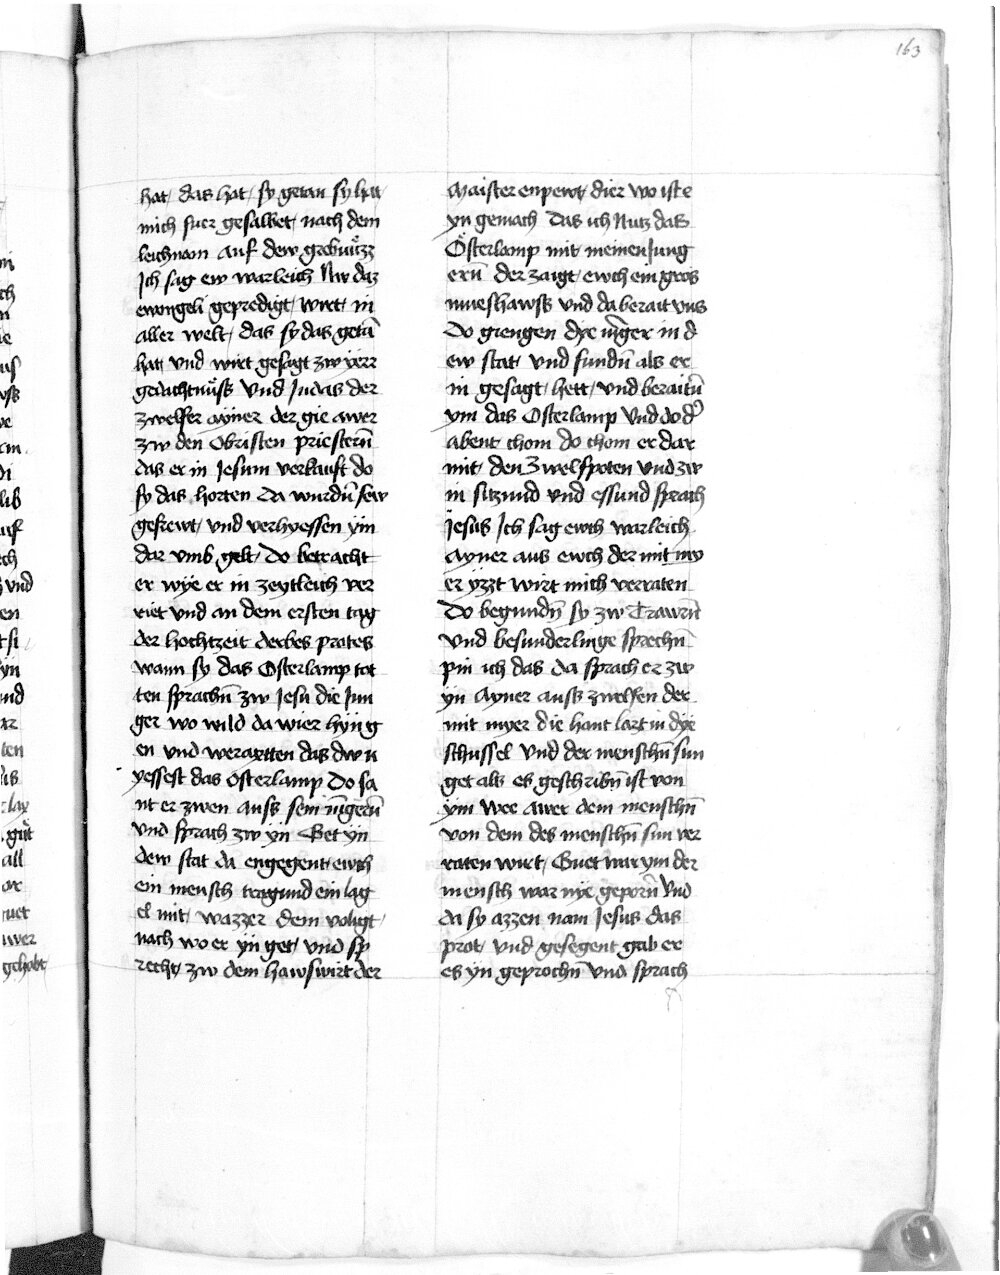 163
hat das hat sy getan sy hat
mich fuer gesalbet nach dem
leichnam auf dew grebnüzz
Ich sag ew warleich Nw daz
ewangeli gepredigt wirt in
aller welt das sy das getā
hat vnd wirt gesagt zw yerr
gedachtnüss Vnd Judas der
zwelfer ayner der gie awer
zw den Obristen priesterñ
das er in Jesum verkauft do
sy das horten Da wurdñ sew
gefrewt vnd verhyessen ym
dar vmb gelt Do betracht
er wye er in zeytleich ver
riet vnd an dem ersten tag
der hochtzeit derbes protes
wann sy das Osterlamp tot
ten sprachñ zw Jesu die Jun
ger wo wild da wier hyng
en vnd weraytten das dw n
yessest das Osterlamp Do sa
nt er zwen auss sein iūgerñ
Vnd sprach zw yn Get yn
dew stat da engegent ewch
ein mensch tragund ein lag
el mit wazzer dem voligt
nach wo er yn get vnd sp
recht zw dem hawswirt der
Maister enpewt dier wo ist e
yn gemach Das ich Nutz das
Österlamp mit meinen Jung
erñ der zaigt ewch ein gros
mueshawss vnd da berait vns
Do giengen dye iūger in d
ew stat vnd fundñ als er
in gesagt hett vnd beraitñ
ym das Osterlamp Vnd do d'
abent chom do chom er dar
mit den Zwelfpoten vnd zw
in sitzund vnd essund sprach
Jesus Ich sag ewch warleich
Ayner aus ewch der mit my
er yzzt wirt mich verraten
Do begundñ sy zw Trawrñ
Vnd besunderlinge sprechñ
pin ich das da sprach er zw
yn Ayner auss zwelfen der
mit myer die hant lazt in dye
schussel Vnd der menschñ sun
get als es geschribñ ist von
ym Wee awer dem menschñ
von dem des menschñ sun ver
raten wirt Guet war ym der
mensch war nye geporñ Vnd
da sy azzen nam Jesus das
prot vnd gesegent gab er
es yn geprochñ vnd sprach